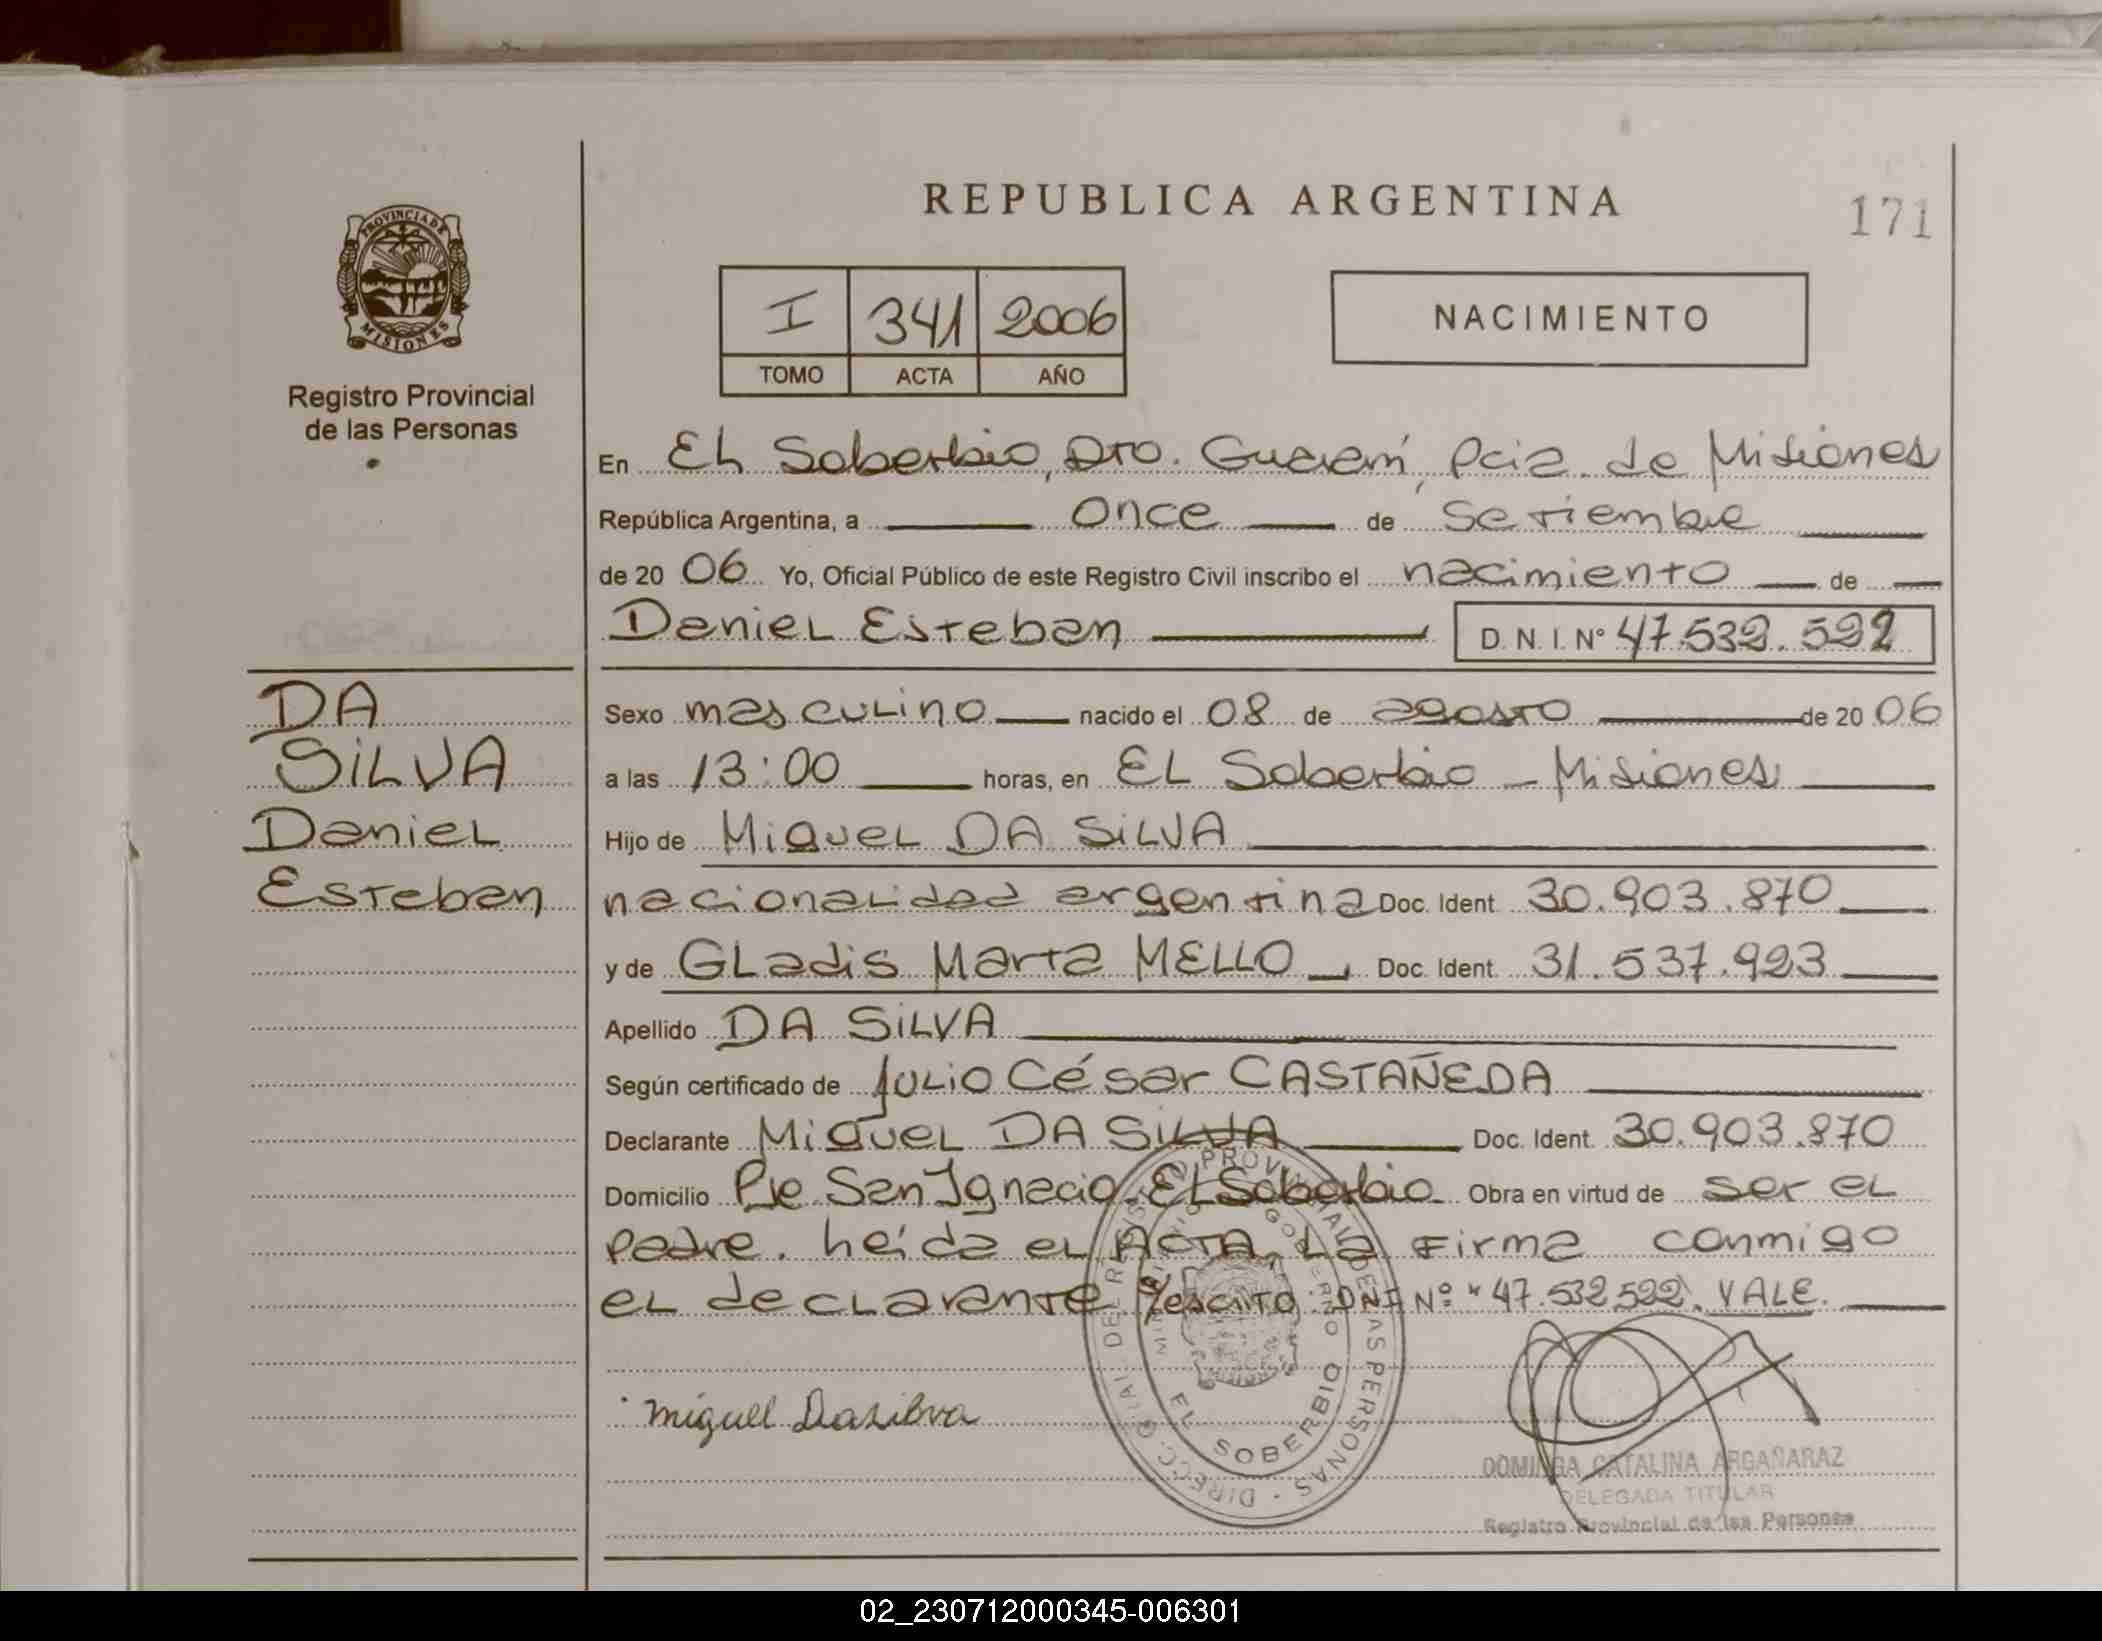 REPUBLICA ARGENTINA
171
PROVINCIA DE MISIONES
Registro Provincial
de las Personas
I 341 2006
TOMO ACTA AÑO
NACIMIENTO
En El Soberbio, Dto. Guaraní, Pcia. de Misiones
República Argentina, a once de Setiembre
de 20 06 Yo, Oficial Público de este Registro Civil inscribo el nacimiento de
Daniel Esteban D.N.I. Nº 47.532.522
DA
SILVA
Daniel
Esteban
Sexo masculino nacido el 08 de agosto de 20 06
a las 13:00 horas, en El Soberbio - Misiones
Hijo de Miguel DA SILVA
nacionalidad argentina Doc. Ident. 30.903.870
y de Gladis Marta MELLO, Doc. Ident. 31.537.923
Apellido DA SILVA
Según certificado de Julio César CASTAÑEDA
Declarante Miguel DA SILVA Doc. Ident. 30.903.870
Domicilio Pje San Ignacio - El Soberbio Obra en virtud de ser el
padre. Leída el ACTA, la firma conmigo
el declarante S/escrito: DNI Nº "47.532.522". VALE.
Miguel Dasilva
EL SOBERBIO
DOMINGA CATALINA ARGAÑARAZ
DELEGADA TITULAR
Registro Provincial de las Personas
02_230712000345-006301